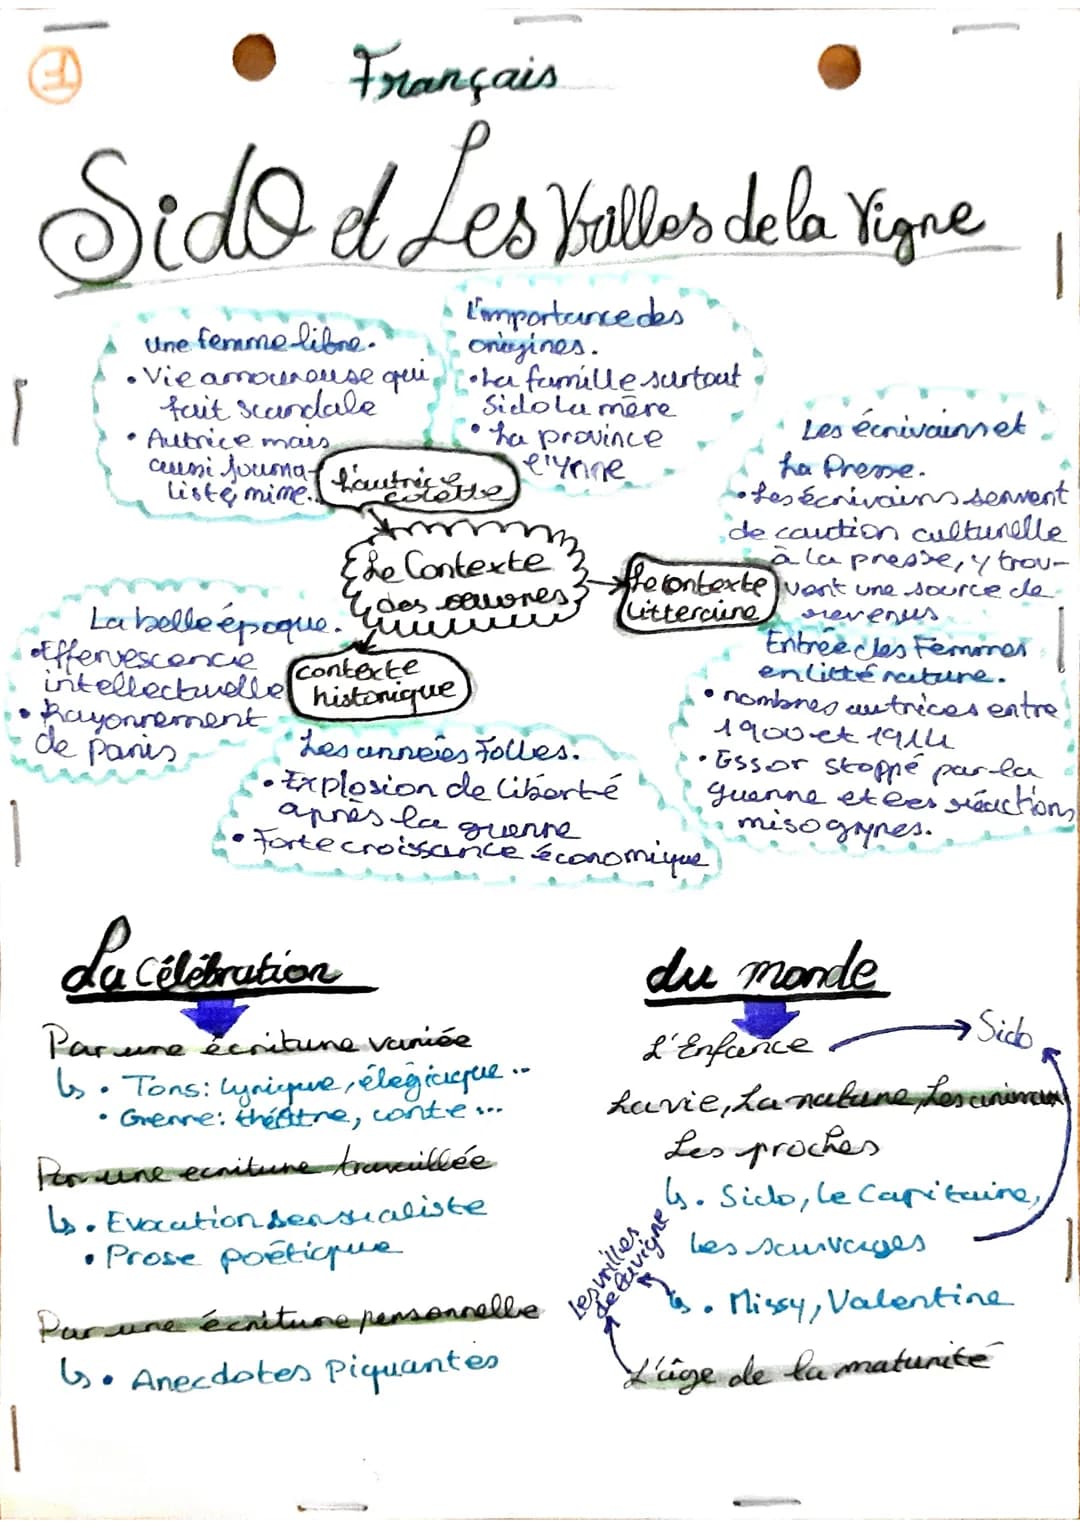 1
Français
Sido et Les Vrilles de la Vigne
une femme libre.
• Vie amoureuse qui
fait scandale
• Autrice mais
aussi journa-
liste, mime.
L'importance des
origines.
• La famille surtout
Sido la mère
• La province
l'Yonne
L'autrice
Colette
Le Contexte
des oeuvres
Le contexte
littéraire
Les écrivains et
La Presse.
• Les écrivains servent
de caution culturelle
à la presse, y trou-
vent une source de
revenus
Entrée des Femmes
en littérature.
• nombres autrices entre
1900 et 1914
• Essor stoppé par la
guerre et les réactions
misogynes.
contexte
historique
La belle époque.
• Effervescence
intellectuelle
• Rayonnement
de Paris
Les années Folles.
• Explosion de liberté
après la guerre
• Forte croissance économique
La célébration
Par une écriture variée
↳ • Tons: lyrique, élegiaque...
• Genre: théâtre, conte...
Par une ecriture travaillée
↳ • Evocation sensualiste
• Prose poétique
Par une écriture personnelle
↳ • Anecdotes Piquantes
du monde
L'Enfance → Sido
La vie, La nature, Les animaux
Les proches
↳ • Sido, le Capitaine,
Les sauvages
↳ • Missy, Valentine
Les vrilles
de la vigne
L'âge de la maturité